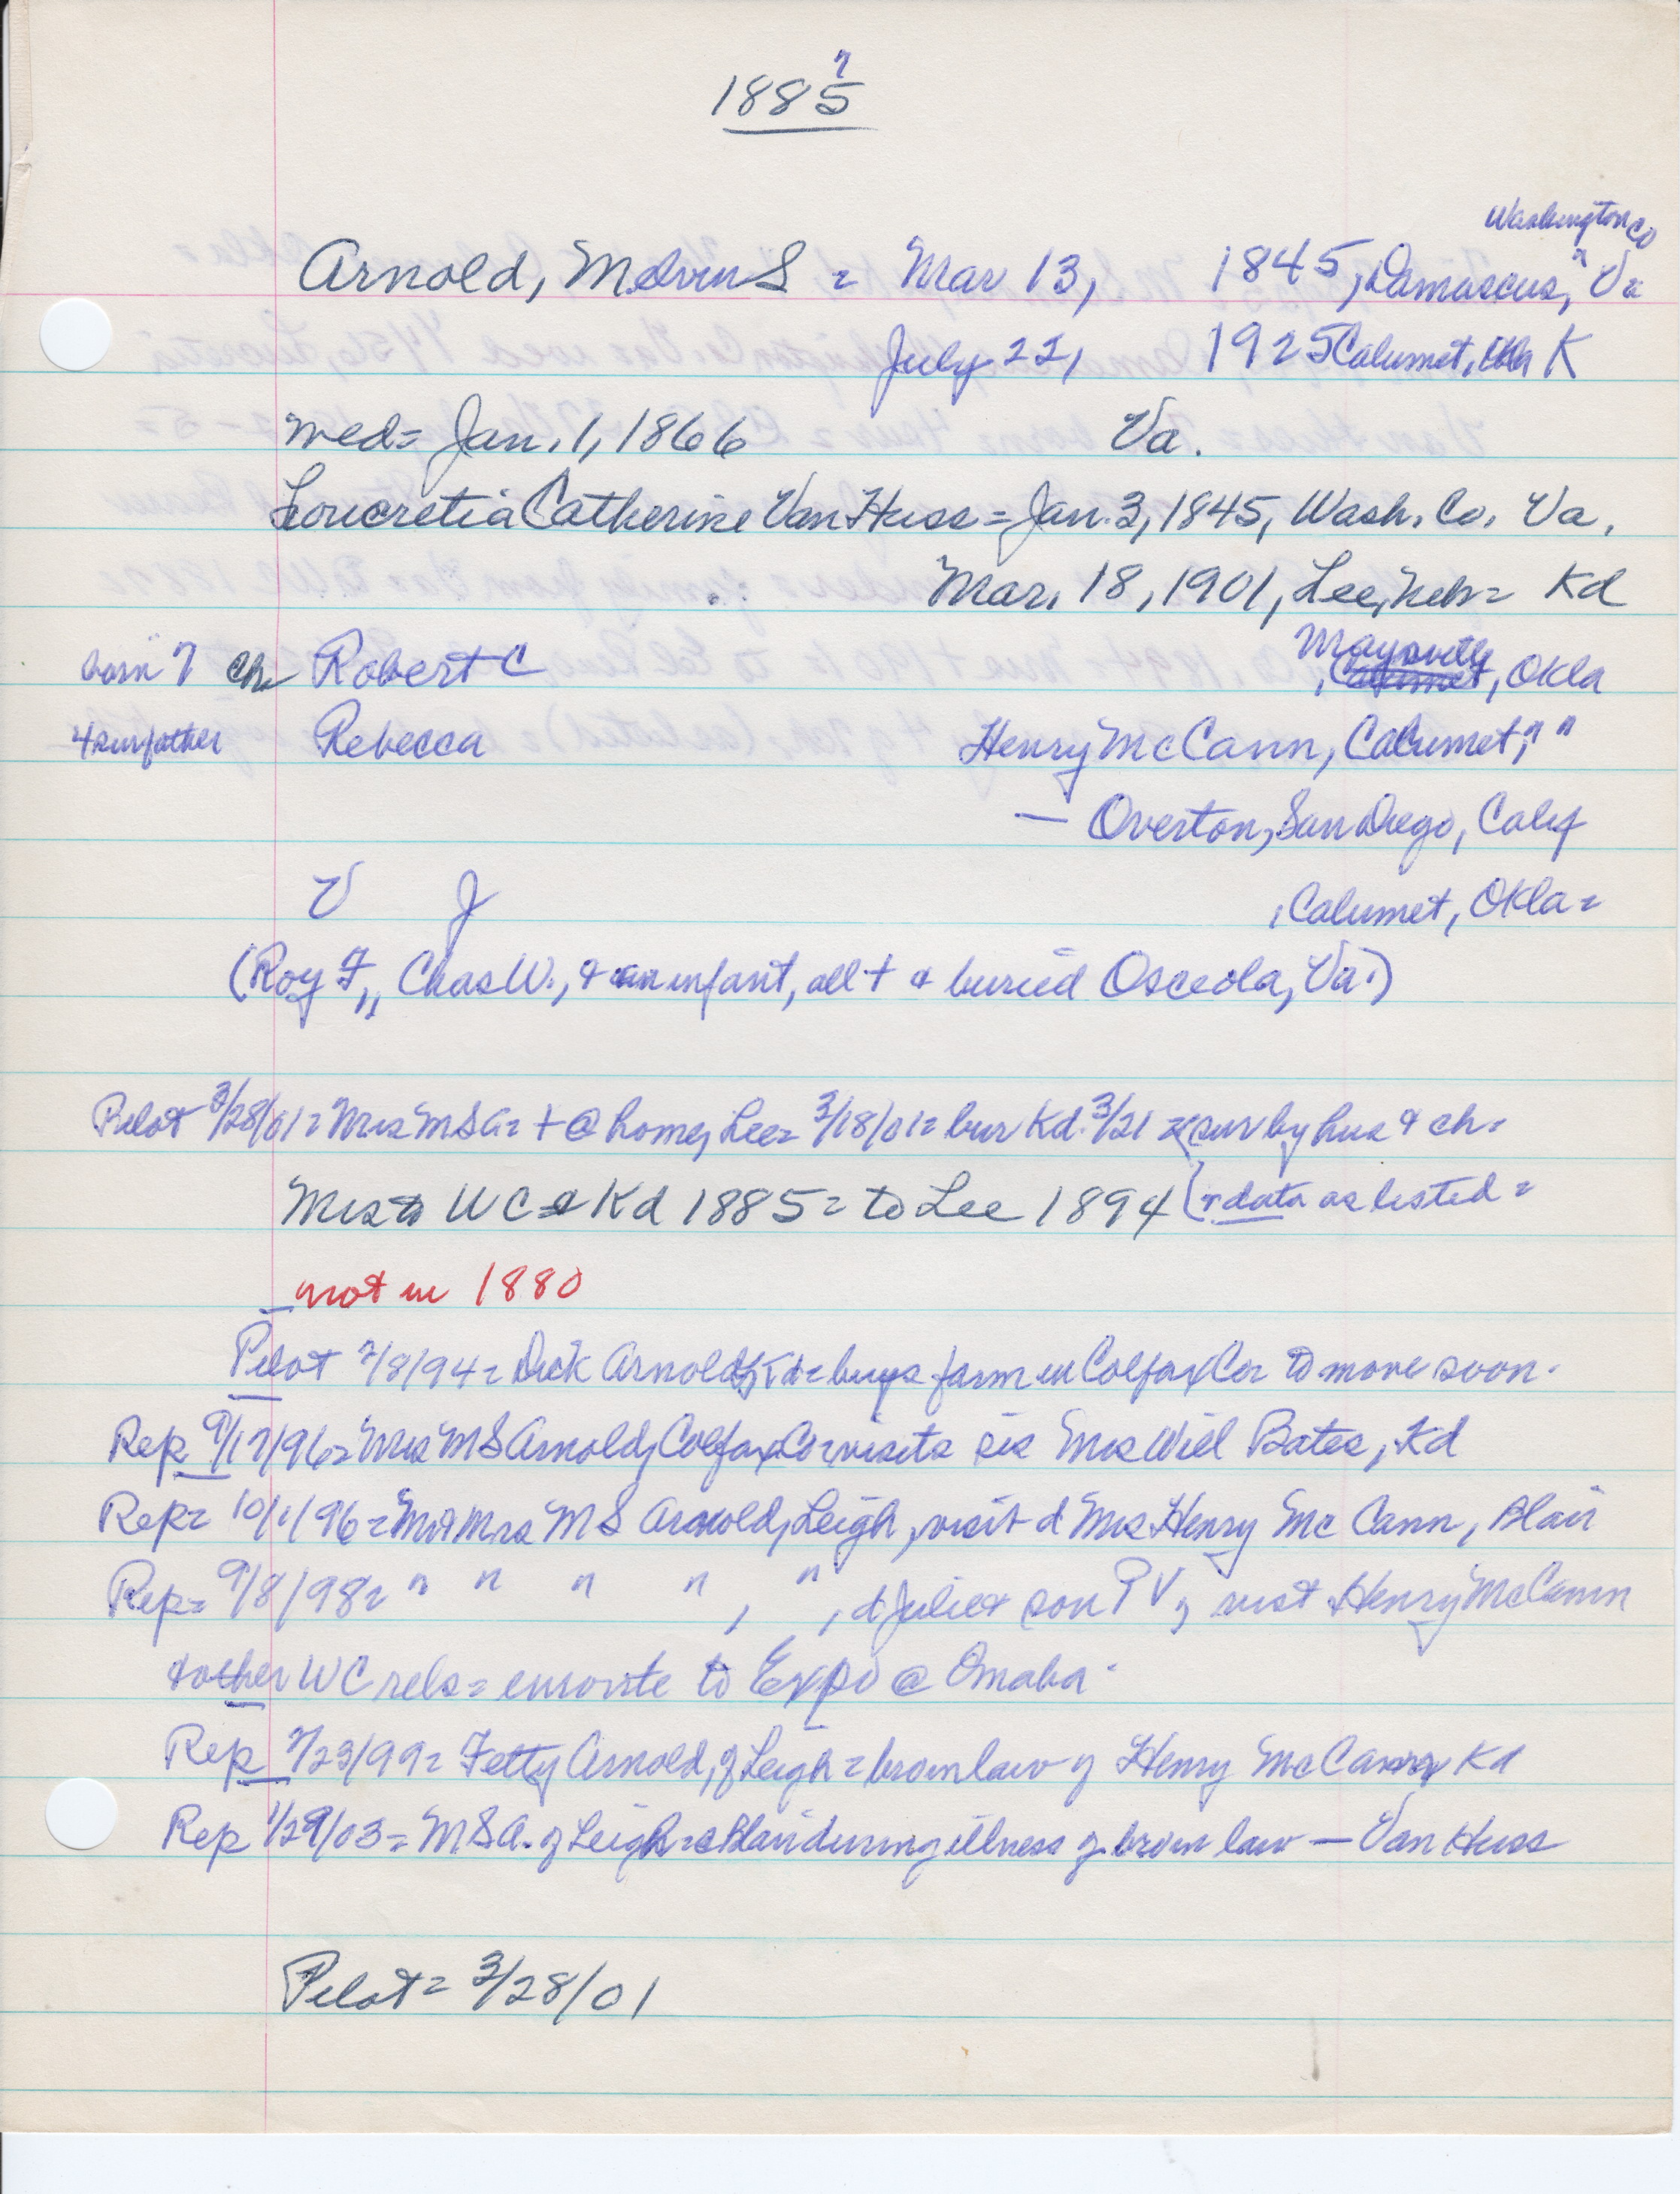 7
1885
Washington Co
Arnold, Melvin S = Mar 13, 1845, Damascus, Va
July 22, 1925 Calumet, Okla K
wed = Jan. 1, 1866 Va.
Loucretia Catherine Van Huss = Jan. 3, 1845, Wash. Co. Va.
Mar. 18, 1901, Lee, Neb = Kd
Maysville
born 7 ch Robert C , Calumet, Okla
4 sur father Rebecca Henry McCann, Calumet, "
— Overton, San Diego, Calif
V J , Calumet, Okla =
(Roy F., Chas W., & an infant, all + & buried Osceola, Va.)
Pilot 3/28/01 = Mrs M S A = + @ home, Lee = 3/18/01 = bur Kd. 3/21 = (sur by hus & ch.
Mrs to W C & Kd 1885 = to Lee 1894 (& data as listed =
not in 1880
Pilot 2/8/94 = Dick Arnold, Kd = buys farm in Colfax Co = to move soon.
Rep 9/17/96 = Mrs M S Arnold, Colfax Co = visits sis Mrs Will Bates, Kd
Rep = 10/1/96 = Mr & Mrs M S Arnold, Leigh, visit d Mrs Henry McCann, Blair
Rep = 9/8/98 = " " " " , " , d Julie & son P V, visit Henry McCann
& other W C rels = enroute to Expo @ Omaha.
Rep 2/23/99 = Fetty Arnold, of Leigh = bro in law of Henry McCann Kd
Rep 1/29/03 = M S A. of Leigh = @ Blair during illness of bro in law — Van Huss
Pilot = 3/28/01